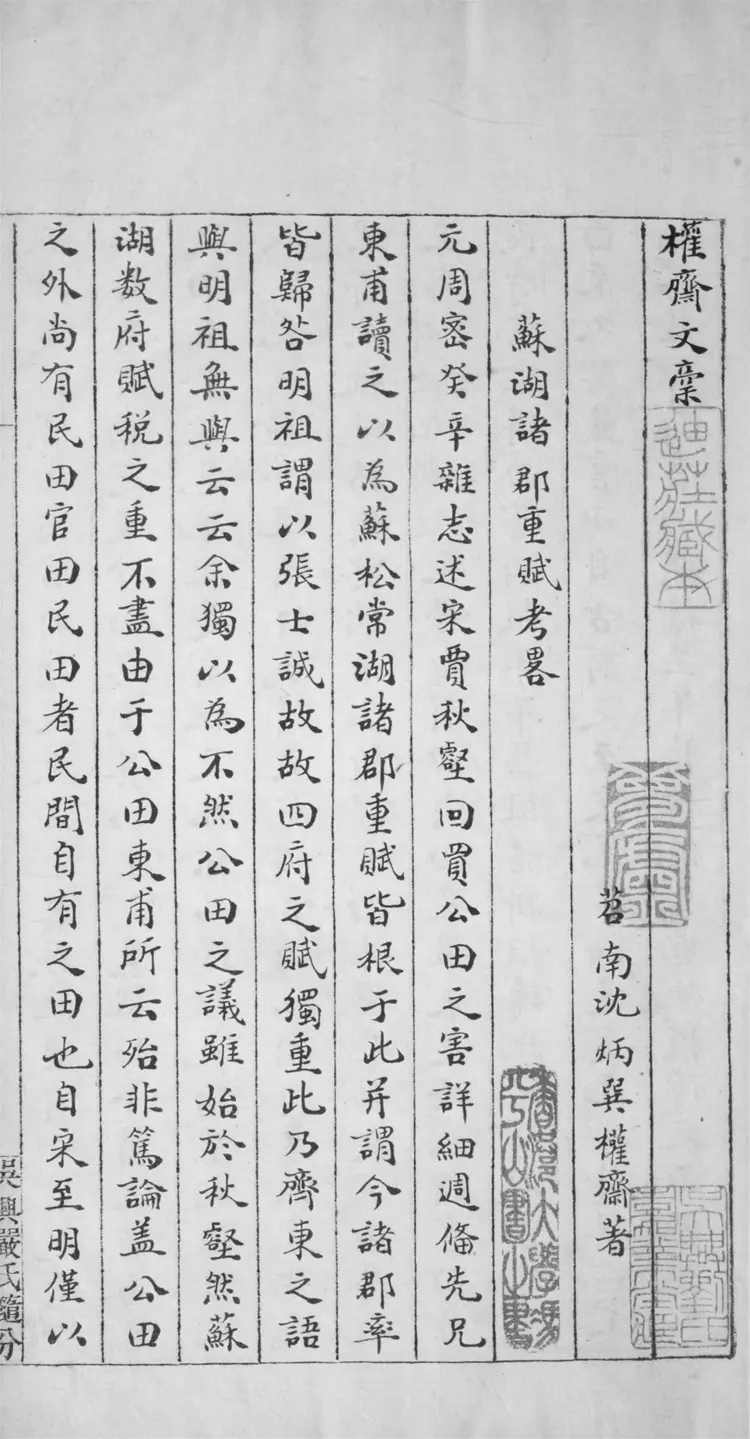 權齋文稾
苕南沈炳巽權齋著
蘇湖諸郡重賦考畧
元周密癸辛雜志述宋賈秋壑回買公田之害詳細週偹先兄
東甫讀之以為蘇松常湖諸郡重賦皆根于此并謂今諸郡率
皆歸咎明祖謂以張士誠故故四府之賦獨重此乃齊東之語
與明祖無與云云余獨以為不然公田之議雖始於秋壑然蘇
湖数府賦税之重不盡由于公田東甫所云殆非篤論盖公田
之外尚有民田官田民田者民間自有之田也自宋至明僅以
吳興嚴氏隨分
迪莊藏本